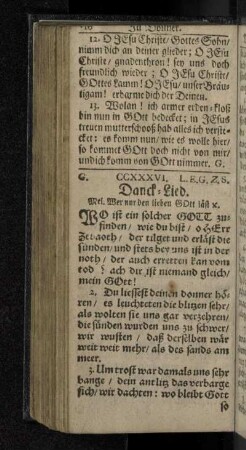 12. O JEsu Christe/ Gottes Sohn/
nimm dich an deiner glieder; O JEsu
Christe/ gnadenthron! sey uns doch
freundlich wieder; O JEsu Christe/
GOttes Lamm! O JEsu/ unser Bräu-
tigam! erbarme dich der Deinen.
13. Wolan! ich armer erden-kloß
bin nun in GOtt bedecket; in JEsus
treuen mutterschooß hab alles ich verste-
cket: es komm nun/ wie es wolle hier/
so kommet GOtt doch nicht von mir/
und ich komm von GOtt nimmer. G.
G. CCXXXVI. L.E.G.Z.S.
Danck-Lied.
Mel. Wer nur den lieben GOtt läst ꝛc.
WO ist ein solcher GOTT zu
finden/ wie du bist/ o HErr
Zebaoth/ der tilget und erläst die
sünden/ und stets bey uns ist in der
noth/ der auch erretten kan vom
tod? Ach dir ist niemand gleich/
mein GOtt!
2. Du liessest deinen donner hö-
ren/ es leuchteten die blitzen sehr/
als wolten sie uns gar verzehren/
die sünden wurden uns zu schwer/
wir wusten/ daß derselben wär
weit weit mehr/ als des sands am
meer.
3. Um trost war damals uns sehr
bange/ dein antlitz das verbarge
sich/ wir dachten: wo bleibt Gott
so